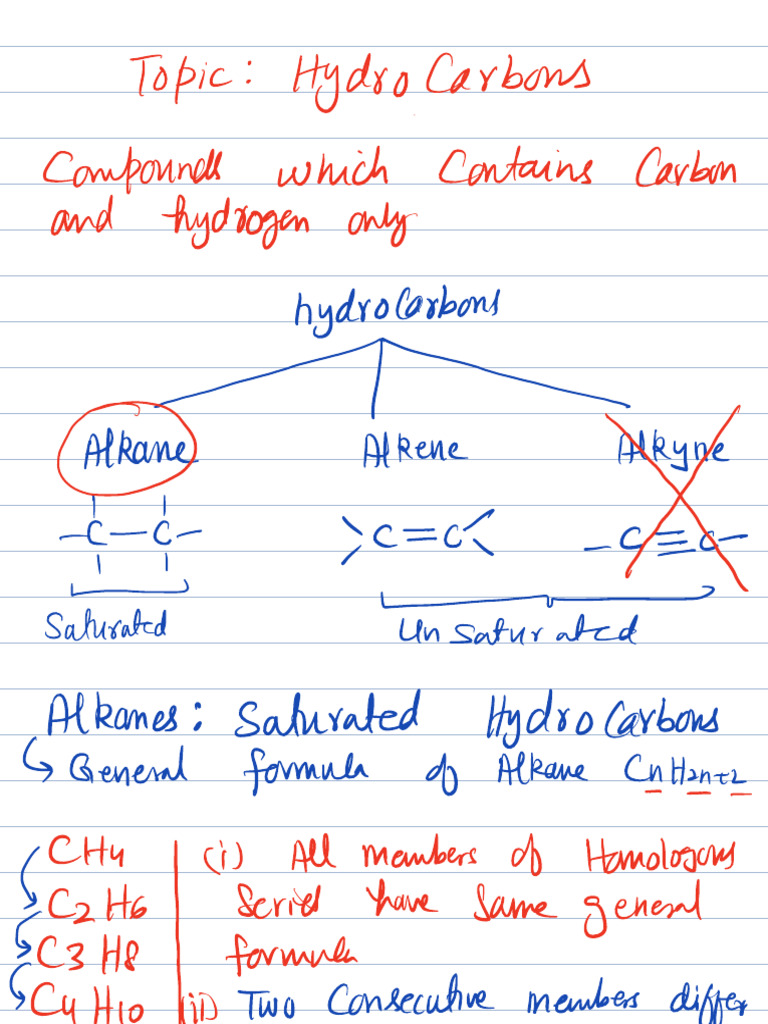 Topic: HydroCarbons
Compounds which Contains Carbon
and hydrogen only
hydroCarbons
Alkane Alkene Alkyne
-C-C- >C=C< -C≡C-
Saturated UnSaturated
Alkanes: Saturated HydroCarbons
General formula of Alkane CnH2n+2
CH4 (i) All members of Homologous
C2H6 Series have Same general
C3H8 formula
C4H10 (ii) Two Consecutive members differ